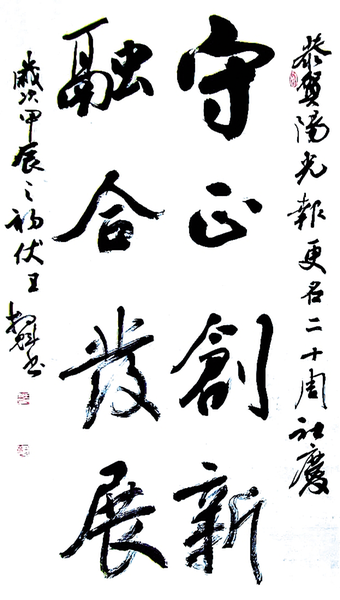 恭賀陽光報更名二十周社慶
守正創新
融合發展
歲次甲辰之初伏王書